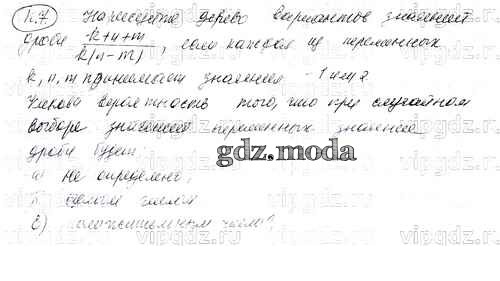 п.7 Нарисуйте дерево вариантов значений
дроби k+n+m / k(n-m), если каждая из переменных
k, n, m принимает значения -1 или 2
Какова вероятность того, что при случайном
выборе значений переменных значение
дроби будет:
а) не определено;
целым числом
положительным числом?
gdz.moda
vipgdz.ru